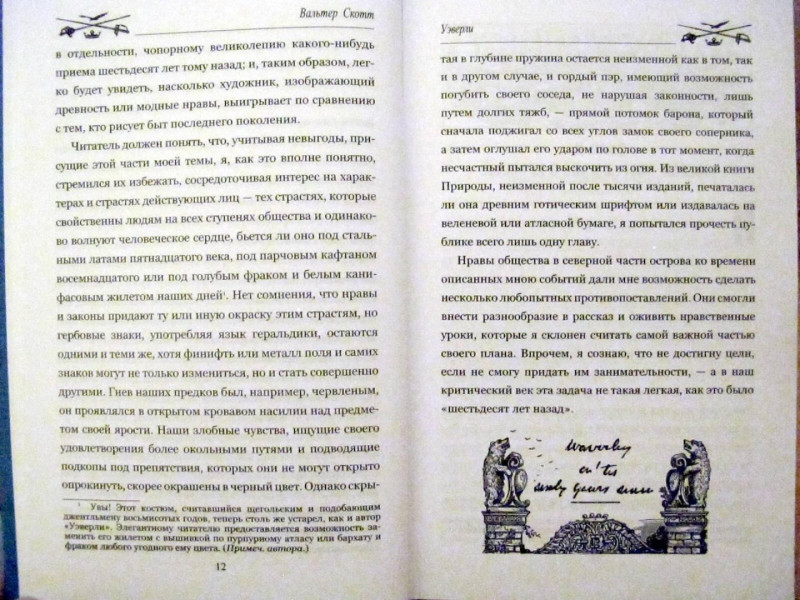 Вальтер Скотт
в отдельности, чопорному великолепию какого-нибудь
приема шестьдесят лет тому назад; и, таким образом, лег-
ко будет увидеть, насколько художник, изображающий
древность или модные нравы, выигрывает по сравнению
с тем, кто рисует быт последнего поколения.
Читатель должен понять, что, учитывая невыгоды, при-
сущие этой части моей темы, я, как это вполне понятно,
стремился их избежать, сосредоточивая интерес на харак-
терах и страстях действующих лиц — тех страстях, которые
свойственны людям на всех ступенях общества и одинако-
во волнуют человеческое сердце, бьется ли оно под сталь-
ными латами пятнадцатого века, под парчовым кафтаном
восемнадцатого или под голубым фраком и белым кани-
фасовым жилетом наших дней¹. Нет сомнения, что нравы
и законы придают ту или иную окраску этим страстям, но
гербовые знаки, употребляя язык геральдики, остаются
одними и теми же, хотя финифть или металл поля и самих
знаков могут не только измениться, но и стать совершенно
другими. Гнев наших предков был, например, червленым,
он проявлялся в открытом кровавом насилии над предме-
том своей ярости. Наши злобные чувства, ищущие своего
удовлетворения более окольными путями и подводящие
подкопы под препятствия, которых они не могут открыто
опрокинуть, скорее окрашены в черный цвет. Однако скры-
¹ Увы! Этот костюм, считавшийся щегольским и подобающим
джентльмену восьмисотых годов, теперь столь же устарел, как и автор
«Уэверли». Элегантному читателю предоставляется возможность за-
менить его жилетом с вышивкой по пурпурному атласу или бархату и
фраком любого угодного ему цвета. (Примеч. автора.)
12
Уэверли
тая в глубине пружина остается неизменной как в том, так
и в другом случае, и гордый пэр, имеющий возможность
погубить своего соседа, не нарушая законности, лишь
путем долгих тяжб, — прямой потомок барона, который
сначала поджигал со всех углов замок своего соперника,
а затем оглушал его ударом по голове в тот момент, когда
несчастный пытался выскочить из огня. Из великой книги
Природы, неизменной после тысячи изданий, печаталась
ли она древним готическим шрифтом или издавалась на
веленевой или атласной бумаге, я попытался прочесть пу-
блике всего лишь одну главу.
Нравы общества в северной части острова ко времени
описанных мною событий дали мне возможность сделать
несколько любопытных противопоставлений. Они смогли
внести разнообразие в рассказ и оживить нравственные
уроки, которые я склонен считать самой важной частью
своего плана. Впрочем, я сознаю, что не достигну цели,
если не смогу придать им занимательности, — а в наш
критический век эта задача не такая легкая, как это было
«шестьдесят лет назад».
Waverley